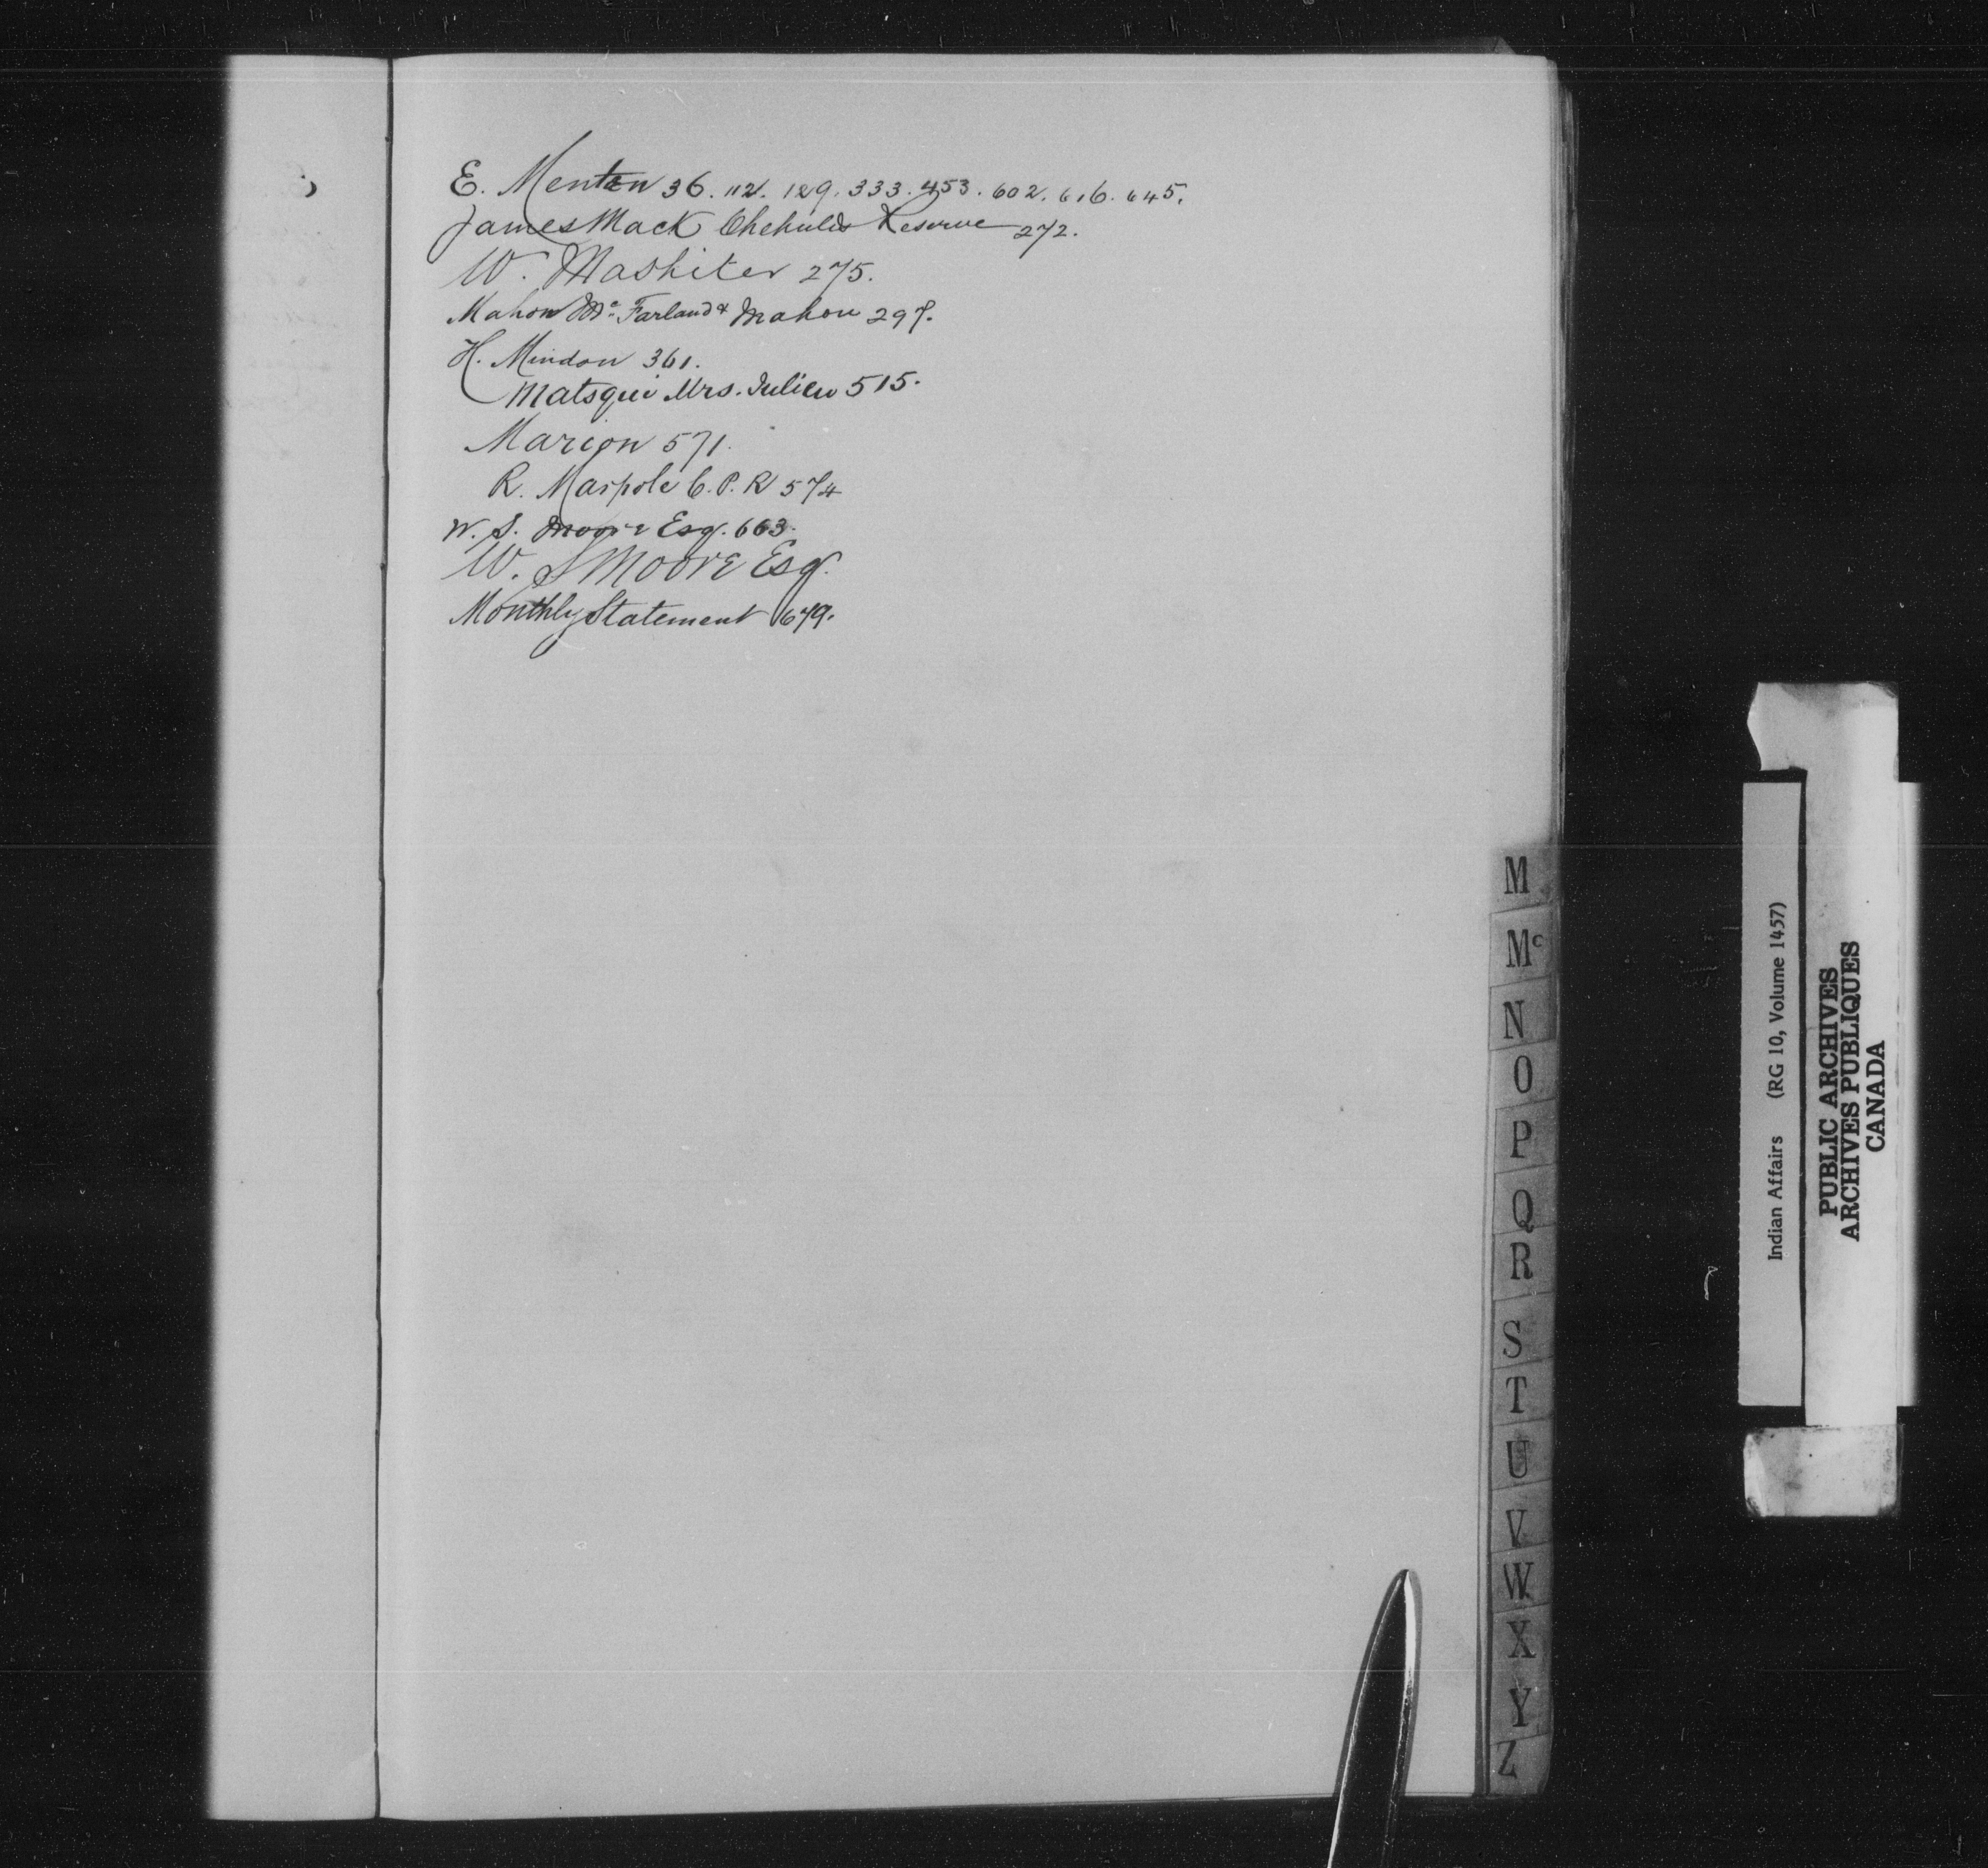 E. Menten 36. 112. 129. 333. 453. 602. 616. 645.
James Mack Chehalis Reserve 272.
W. Mashiter 275.
Mahon Mc. Farland & Mahon 297.
H. Mindon 361.
Matsqui Mrs. Julien 515.
Marion 571.
R. Marpole C.P.R 574
W. S. Moore Esq. 663.
W. S Moore Esq.
Monthly Statement 679.
M
Mc
N
O
P
Q
R
S
T
U
V
W
X
Y
Z
Indian Affairs (RG 10, Volume 1457)
PUBLIC ARCHIVES
ARCHIVES PUBLIQUES
CANADA